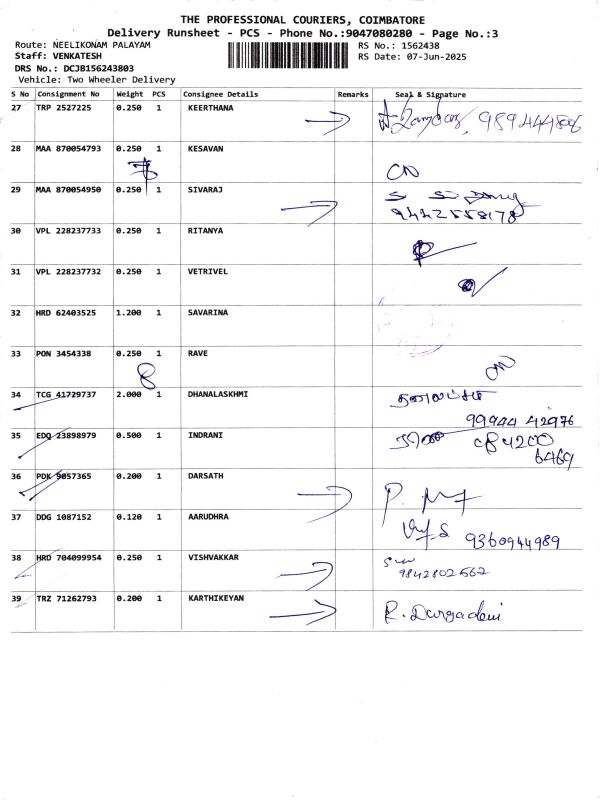 THE PROFESSIONAL COURIERS, COIMBATORE
Delivery Runsheet - PCS - Phone No.:9047080280 - Page No.:3
Route: NEELIKONAM PALAYAM RS No.: 1562438
Staff: VENKATESH RS Date: 07-Jun-2025
DRS No.: DCJB156243803
Vehicle: Two Wheeler Delivery
S No Consignment No Weight PCS Consignee Details Remarks Seal & Signature
27 TRP 2527225 0.250 1 KEERTHANA
28 MAA 870054793 0.250 1 KESAVAN
CN
29 MAA 870054950 0.250 1 SIVARAJ
9442558178
30 VPL 228237733 0.250 1 RITANYA
31 VPL 228237732 0.250 1 VETRIVEL
32 HRD 62403525 1.200 1 SAVARINA
33 PON 3454338 0.250 1 RAVE
8 CN
34 TCG 41729737 2.000 1 DHANALASKHMI
99944 42976
35 EDQ 23898979 0.500 1 INDRANI
6469
36 PDK 9057365 0.200 1 DARSATH
37 DDG 1087152 0.120 1 AARUDHRA
9360944989
38 HRD 704099954 0.250 1 VISHVAKKAR
9842802562
39 TRZ 71262793 0.200 1 KARTHIKEYAN R. Durgadevi